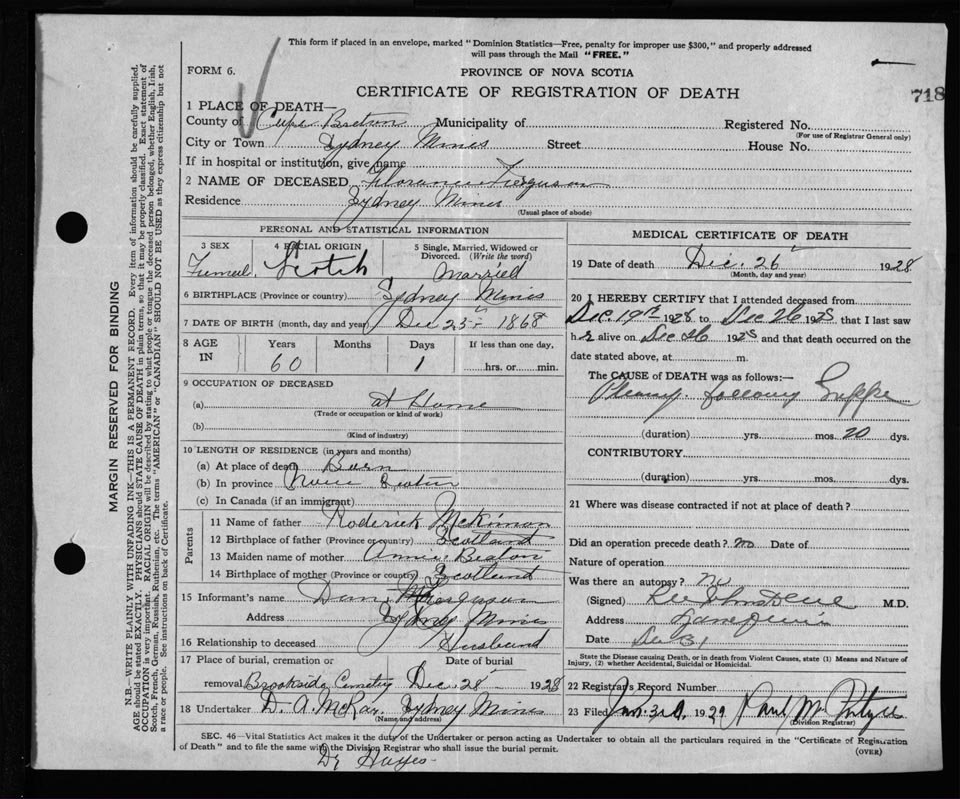 This form if placed in an envelope, marked "Dominion Statistics—Free, penalty for improper use $300," and properly addressed
will pass through the Mail "FREE."
FORM 6.
PROVINCE OF NOVA SCOTIA
CERTIFICATE OF REGISTRATION OF DEATH
718
1 PLACE OF DEATH—
County of Cape Breton Municipality of Registered No.
(For use of Registrar General only)
City or Town Sydney Mines Street House No.
If in hospital or institution, give name
2 NAME OF DECEASED Florence Ferguson
Residence Sydney Mines
(Usual place of abode)
PERSONAL AND STATISTICAL INFORMATION
3 SEX 4 RACIAL ORIGIN 5 Single, Married, Widowed or Divorced. (Write the word)
Female Scotch Married
6 BIRTHPLACE (Province or country) Sydney Mines
7 DATE OF BIRTH (month, day and year) Dec 25 1868
8 AGE IN Years Months Days If less than one day,
60 1 hrs. or min.
9 OCCUPATION OF DECEASED
(a) at Home
(Trade or occupation or kind of work)
(b)
(Kind of industry)
10 LENGTH OF RESIDENCE (in years and months)
(a) At place of death Born
(b) In province Nova Scotia
(c) In Canada (if an immigrant)
Parents
11 Name of father Roderick McKinnon
12 Birthplace of father (Province or country) Scotland
13 Maiden name of mother Annie Beaton
14 Birthplace of mother (Province or country) Scotland
15 Informant's name Dan Ferguson
Address Sydney Mines
16 Relationship to deceased Husband
17 Place of burial, cremation or removal Date of burial
Brookside Cemetery Dec. 28 1928
18 Undertaker D. A. McKay, Sydney Mines
(Name and address)
MEDICAL CERTIFICATE OF DEATH
19 Date of death Dec. 26 1928
(Month, day and year)
20 I HEREBY CERTIFY that I attended deceased from
Dec. 19th 1928 to Dec 26 1928 that I last saw
her alive on Dec 26 1928 and that death occurred on the
date stated above, at m.
The CAUSE of DEATH was as follows:—
following Grippe
(duration) yrs. mos. 20 dys.
CONTRIBUTORY
(duration) yrs. mos. dys.
21 Where was disease contracted if not at place of death?
Did an operation precede death? no Date of
Nature of operation
Was there an autopsy? no
(Signed) M.D.
Address
Date Dec 31
State the Disease causing Death, or in death from Violent Causes, state (1) Means and Nature of
Injury, (2) whether Accidental, Suicidal or Homicidal.
22 Registrar's Record Number
23 Filed Jan. 1929
(Division Registrar)
SEC. 46—Vital Statistics Act makes it the duty of the Undertaker or person acting as Undertaker to obtain all the particulars required in the "Certificate of Registration
of Death" and to file the same with the Division Registrar who shall issue the burial permit.
(OVER)
Dr Hayes
MARGIN RESERVED FOR BINDING
N.B.—WRITE PLAINLY WITH UNFADING INK—THIS IS A PERMANENT RECORD. Every item of information should be carefully supplied.
AGE should be stated EXACTLY. PHYSICIANS should STATE CAUSE OF DEATH in plain terms, so that it may be properly classified. Exact statement of
OCCUPATION is very important. RACIAL ORIGIN will be described by stating to what people or tongue the deceased person belonged, whether English, Irish,
Scotch, French, German, Russian, Ruthenian, etc. The terms "AMERICAN" or "CANADIAN" SHOULD NOT BE USED as they express citizenship but not
a race or people. See instructions on back of Certificate.